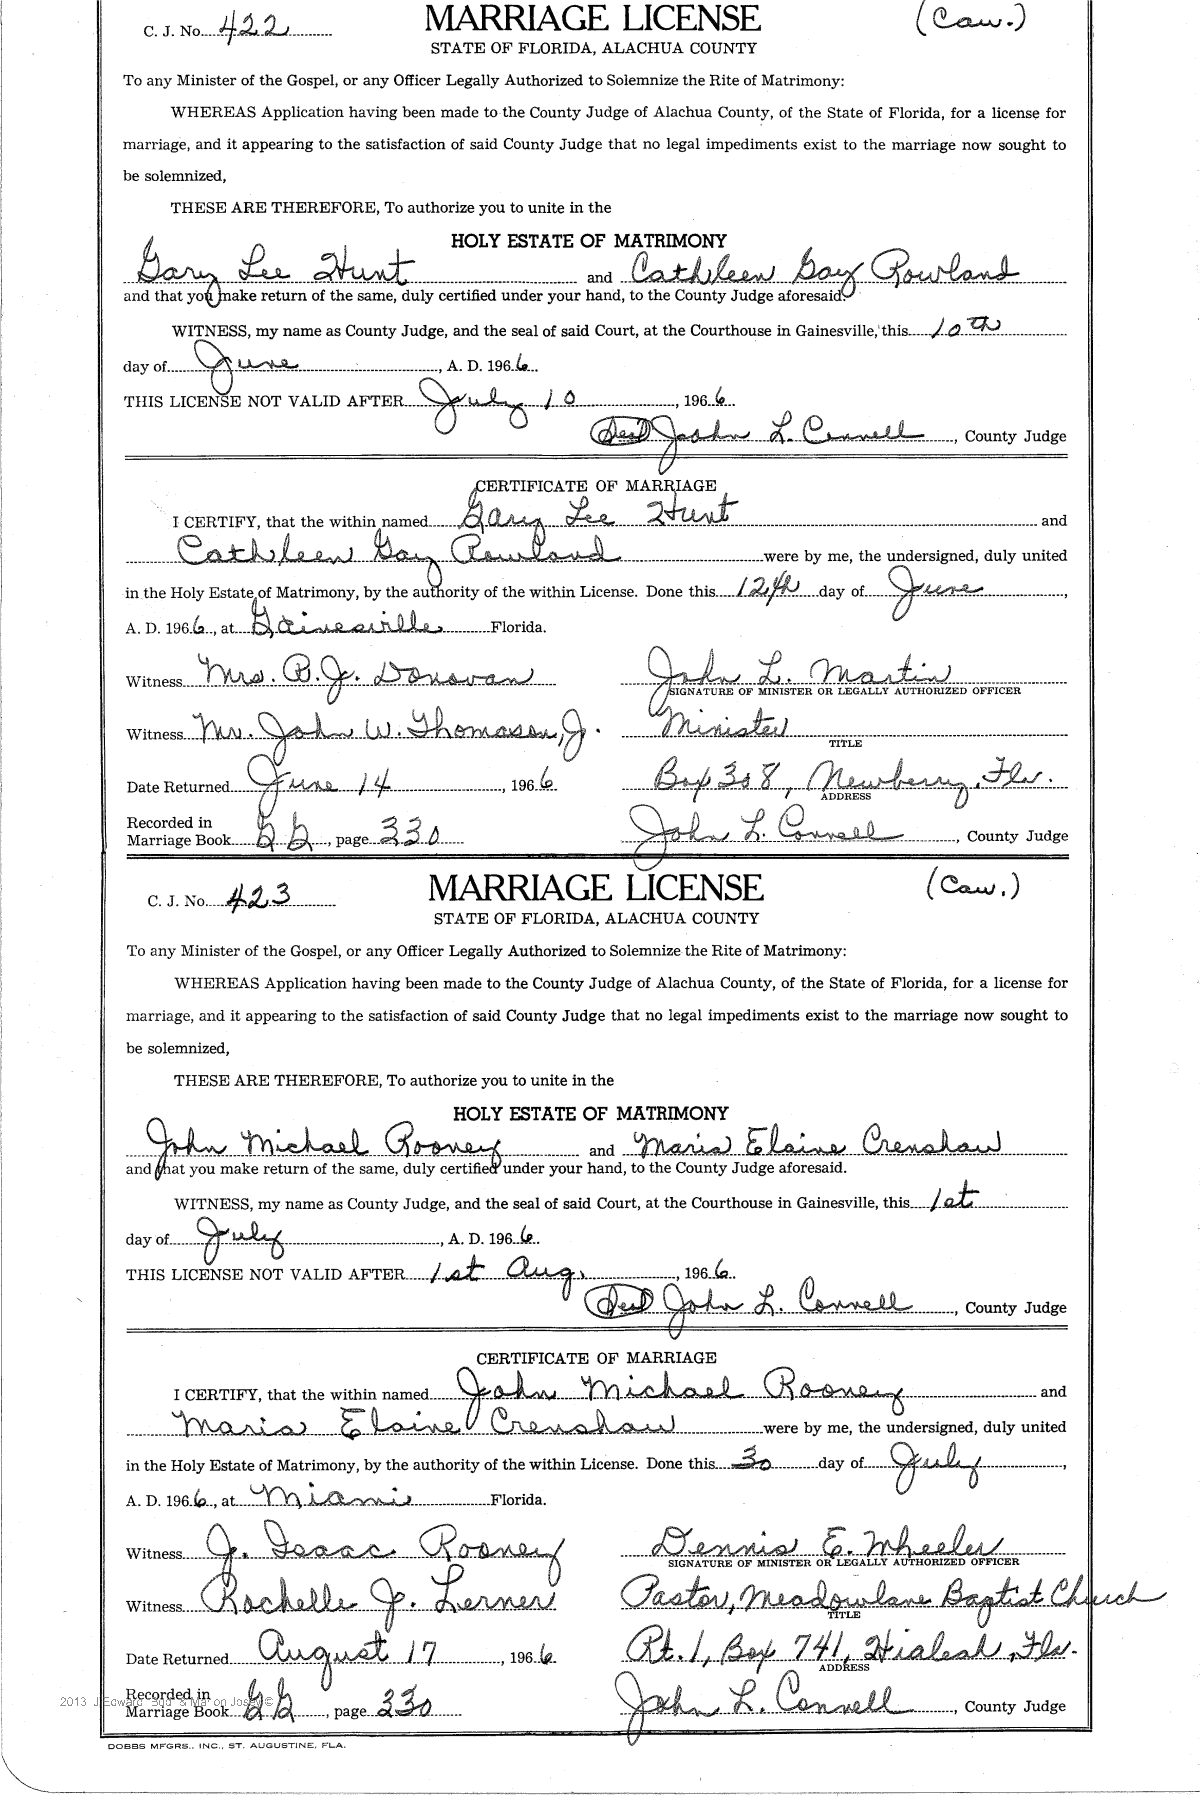 C. J. No. 422 MARRIAGE LICENSE (Caw.)
STATE OF FLORIDA, ALACHUA COUNTY
To any Minister of the Gospel, or any Officer Legally Authorized to Solemnize the Rite of Matrimony:
WHEREAS Application having been made to the County Judge of Alachua County, of the State of Florida, for a license for
marriage, and it appearing to the satisfaction of said County Judge that no legal impediments exist to the marriage now sought to
be solemnized,
THESE ARE THEREFORE, To authorize you to unite in the
HOLY ESTATE OF MATRIMONY
Gary Lee Hunt and Cathleen Gay Rowland
and that you make return of the same, duly certified under your hand, to the County Judge aforesaid.
WITNESS, my name as County Judge, and the seal of said Court, at the Courthouse in Gainesville, this 10th
day of June, A. D. 1966
THIS LICENSE NOT VALID AFTER July 10, 1966
(Seal) John L. Connell, County Judge
CERTIFICATE OF MARRIAGE
I CERTIFY, that the within named Gary Lee Hunt and
Cathleen Gay Rowland were by me, the undersigned, duly united
in the Holy Estate of Matrimony, by the authority of the within License. Done this 12th day of June,
A. D. 1966, at Gainesville Florida.
Witness Mrs. B. J. Donovan John L. Martin
SIGNATURE OF MINISTER OR LEGALLY AUTHORIZED OFFICER
Witness Mr. John W. Thomason, Jr. Minister
TITLE
Date Returned June 14, 1966 Box 308, Newberry, Fla.
ADDRESS
Recorded in
Marriage Book GG, page 330 John L. Connell, County Judge
C. J. No. 423 MARRIAGE LICENSE (Caw.)
STATE OF FLORIDA, ALACHUA COUNTY
To any Minister of the Gospel, or any Officer Legally Authorized to Solemnize the Rite of Matrimony:
WHEREAS Application having been made to the County Judge of Alachua County, of the State of Florida, for a license for
marriage, and it appearing to the satisfaction of said County Judge that no legal impediments exist to the marriage now sought to
be solemnized,
THESE ARE THEREFORE, To authorize you to unite in the
HOLY ESTATE OF MATRIMONY
John Michael Rooney and Maria Elaine Crenshaw
and that you make return of the same, duly certified under your hand, to the County Judge aforesaid.
WITNESS, my name as County Judge, and the seal of said Court, at the Courthouse in Gainesville, this 1st
day of July, A. D. 1966
THIS LICENSE NOT VALID AFTER 1st Aug., 1966
(Seal) John L. Connell, County Judge
CERTIFICATE OF MARRIAGE
I CERTIFY, that the within named John Michael Rooney and
Maria Elaine Crenshaw were by me, the undersigned, duly united
in the Holy Estate of Matrimony, by the authority of the within License. Done this 30 day of July,
A. D. 1966, at Miami Florida.
Witness J. Isaac Rooney Dennis E. Wheeler
SIGNATURE OF MINISTER OR LEGALLY AUTHORIZED OFFICER
Witness Rochelle J. Lerner Pastor, Meadowlane Baptist Church
TITLE
Date Returned August 17, 1966 Rt. 1, Box 741, Hialeah, Fla.
ADDRESS
Recorded in
Marriage Book GG, page 330 John L. Connell, County Judge
DOBBS MFGRS., INC., ST. AUGUSTINE, FLA.
2013